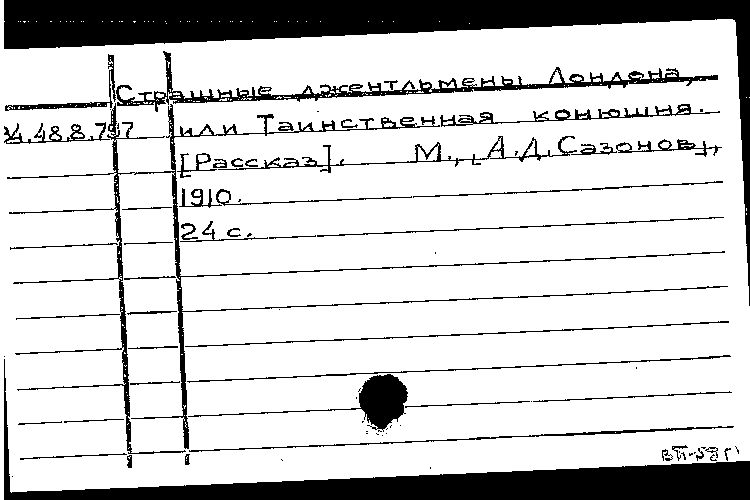 Страшные джентльмены Лондона,
или Таинственная конюшня.
[Рассказ]. М., [А.Д.Сазонов],
1910.
24 с.